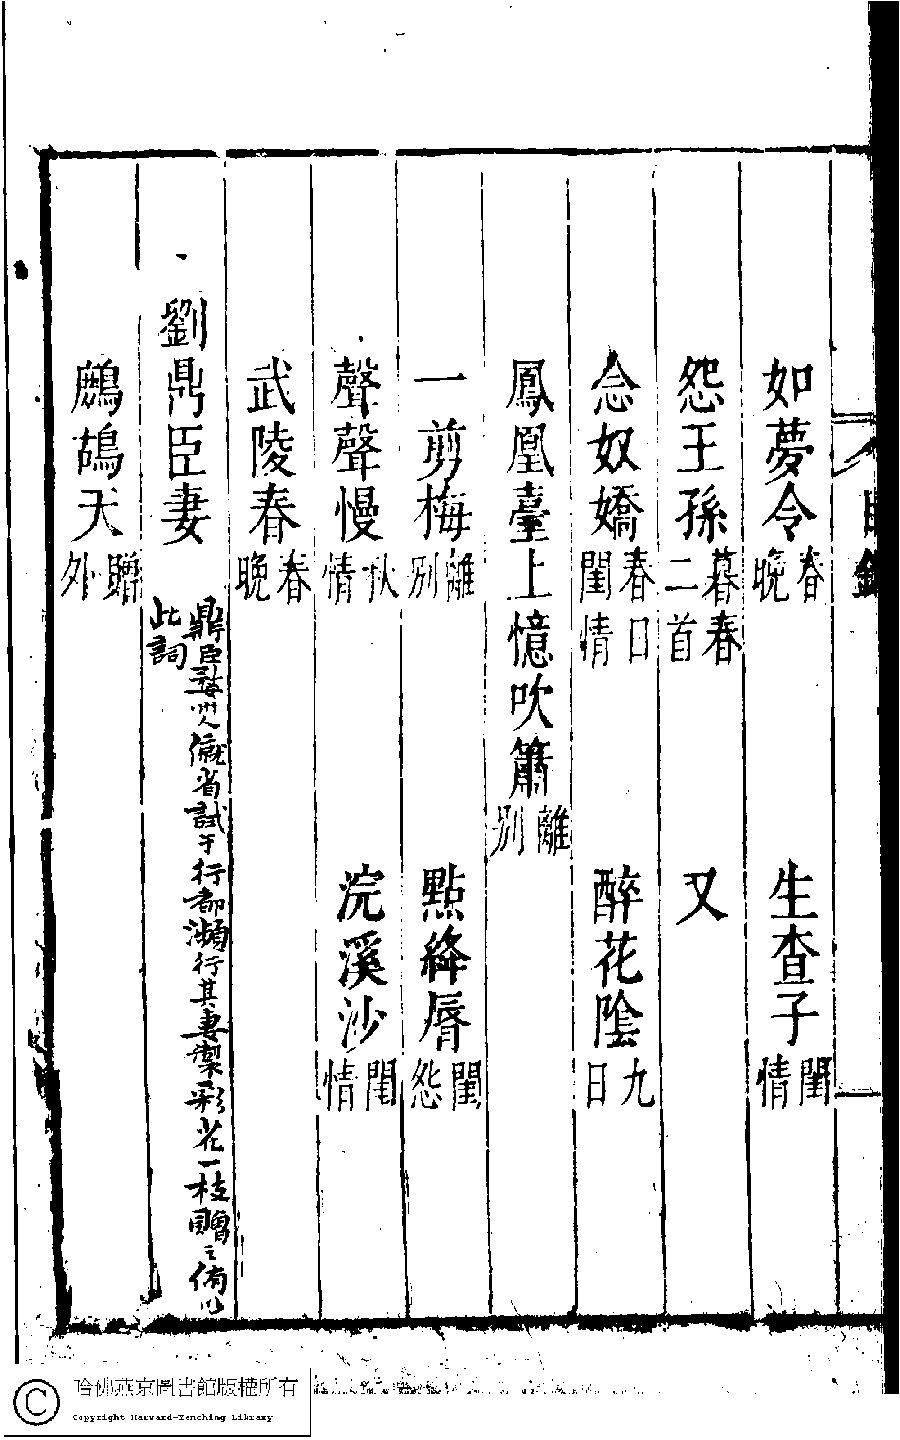 目錄
如夢令 春晚 生查子 閨情
怨王孫 暮春二首 又
念奴嬌 春日閨情 醉花陰 九日
鳳凰臺上憶吹簫 離別
一剪梅 離別 點絳脣 閨怨
聲聲慢 秋情 浣溪沙 閨情
武陵春 春晚
劉鼎臣妻 鼎臣婺州人僦省試于行都瀕行其妻製彩花一枝贈之侑以
此詞
鷓鴣天 贈外
哈佛燕京圖書館版權所有
Copyright Harvard-Yenching Library